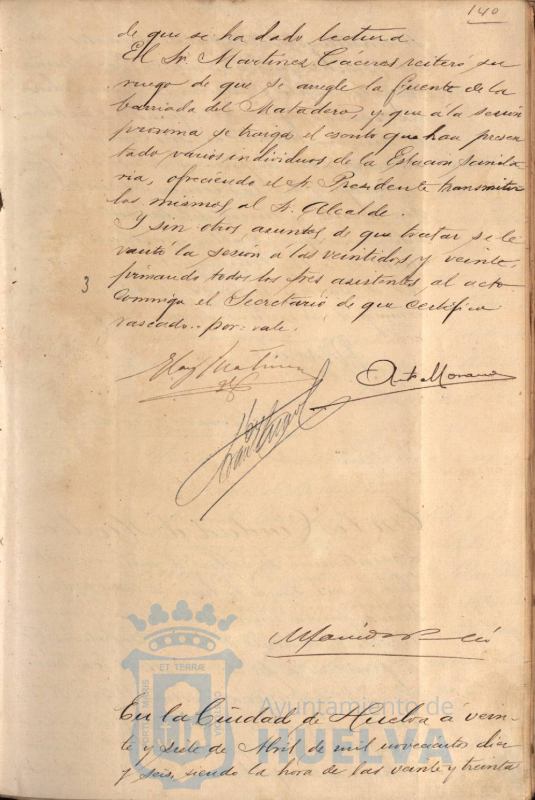 140
de que se ha dado lectura.
El Sr. Martinez Cáceres reiteró su
ruego de que se arregle la fuente de la
barriada del Matadero, y que á la sesión
proxima se traiga el escrito que han presen
tado varios individuos de la Estacion sanita
ria, ofreciendo el Sr. Presidente transmitir
los mismos al Sr. Alcalde.
Y sin otros asuntos de que tratar se le
vantó la sesión á las veintidos y veinte,
firmando todos los tres asistentes al acto
3
conmigo el Secretario de que certifico
rascado.. por: vale.
ET TERRÆ
PORTUS MARIS
Ayuntamiento de
HUELVA
En la Ciudad de Huelva á vein-
te y siete de Abril de mil novecientos diez
y seis, siendo la hora de las veinte y treinta